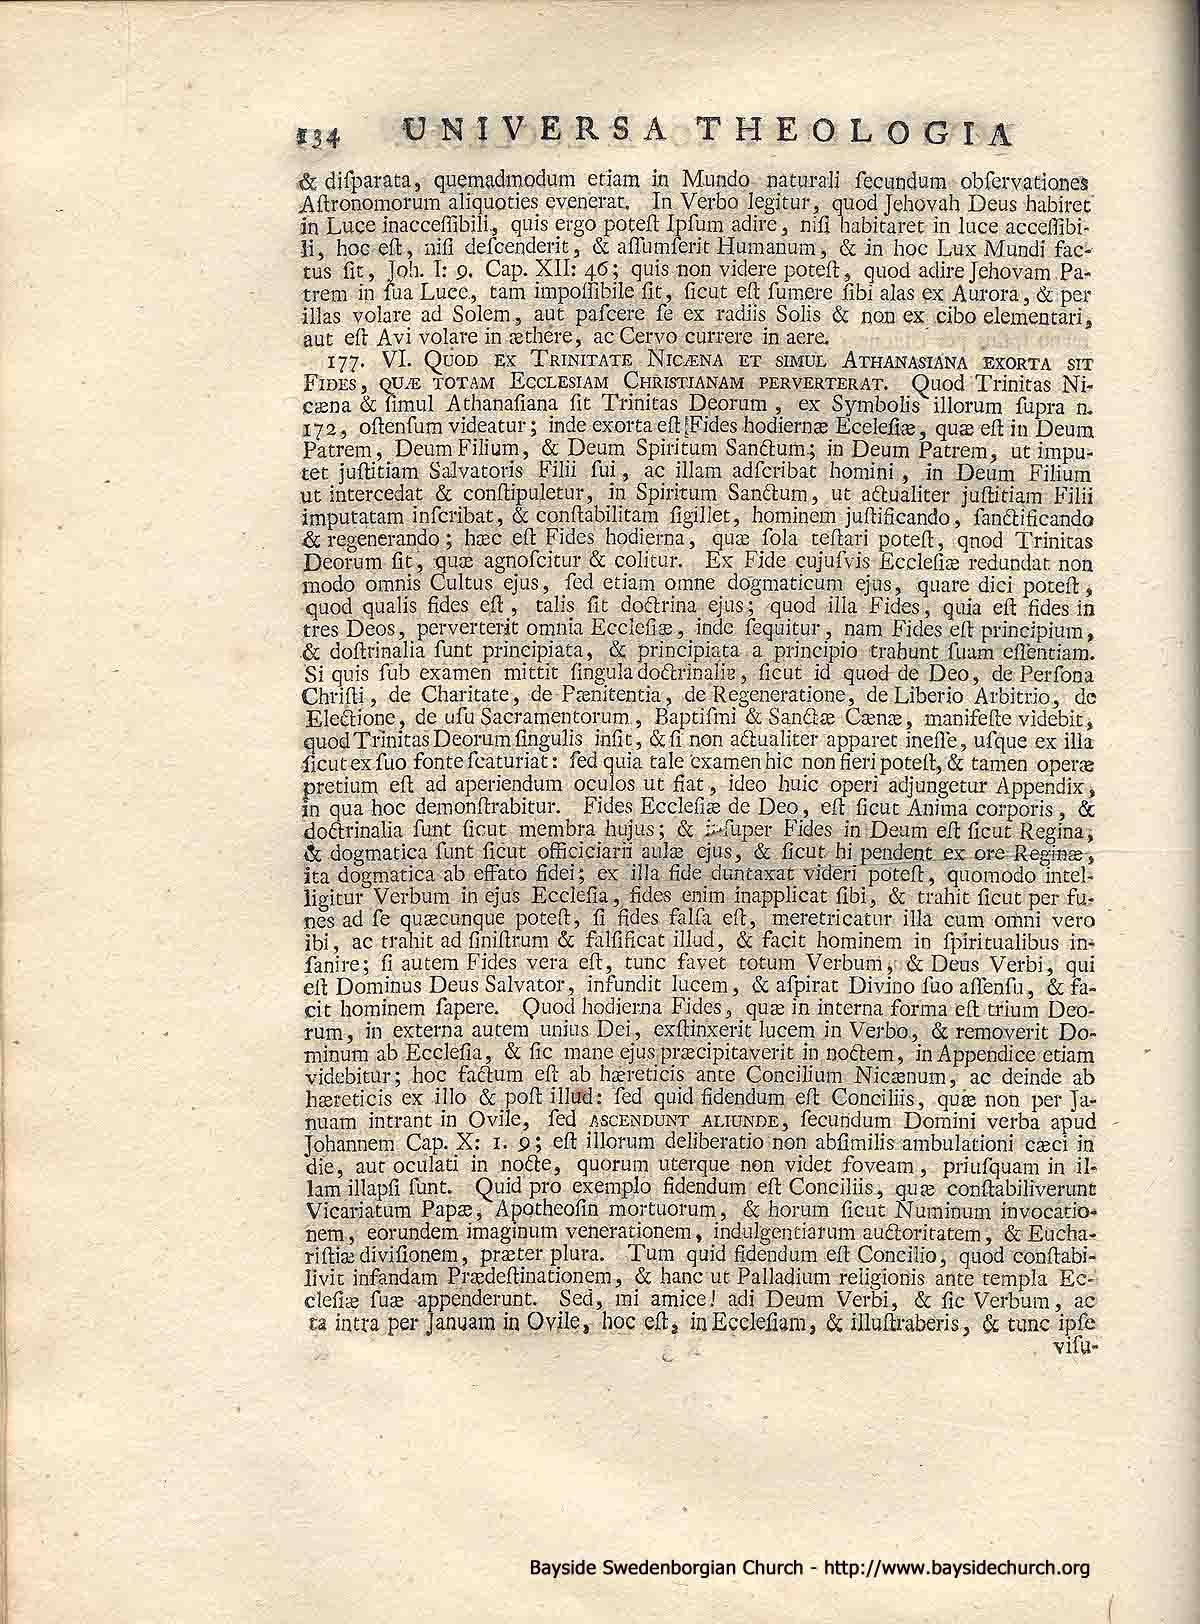 134 UNIVERSA THEOLOGIA
& diſparata, quemadmodum etiam in Mundo naturali ſecundum obſervationes
Aſtronomorum aliquoties evenerat. In Verbo legitur, quod Jehovah Deus habiret
in Luce inacceſſibili, quis ergo poteſt Ipſum adire, niſi habitaret in luce acceſſibi-
li, hoc eſt, niſi deſcenderit, & aſſumſerit Humanum, & in hoc Lux Mundi fac-
tus ſit, Joh. I: 9. Cap. XII: 46; quis non videre poteſt, quod adire Jehovam Pa-
trem in ſua Luce, tam impoſſibile ſit, ſicut eſt ſumere ſibi alas ex Aurora, & per
illas volare ad Solem, aut paſcere ſe ex radiis Solis & non ex cibo elementari,
aut eſt Avi volare in æthere, ac Cervo currere in aere.
177. VI. QUOD EX TRINITATE NICÆNA ET SIMUL ATHANASIANA EXORTA SIT
FIDES, QUÆ TOTAM ECCLESIAM CHRISTIANAM PERVERTERAT. Quod Trinitas Ni-
cæna & ſimul Athanaſiana ſit Trinitas Deorum, ex Symbolis illorum ſupra n.
172, oſtenſum videatur; inde exorta eſt Fides hodiernæ Eceleſiæ, quæ eſt in Deum
Patrem, Deum Filium, & Deum Spiritum Sanctum; in Deum Patrem, ut impu-
tet juſtitiam Salvatoris Filii ſui, ac illam adſcribat homini, in Deum Filium
ut intercedat & conſtipuletur, in Spiritum Sanctum, ut actualiter juſtitiam Filii
imputatam inſcribat, & conſtabilitam ſigillet, hominem juſtificando, ſanctificando
& regenerando; hæc eſt Fides hodierna, quæ ſola teſtari poteſt, qnod Trinitas
Deorum ſit, quæ agnoſcitur & colitur. Ex Fide cujuſvis Eccleſiæ redundat non
modo omnis Cultus ejus, ſed etiam omne dogmaticum ejus, quare dici poteſt,
quod qualis fides eſt, talis ſit doctrina ejus; quod illa Fides, quia eſt fides in
tres Deos, perverterit omnia Eccleſiæ, inde ſequitur, nam Fides eſt principium,
& doſtrinalia ſunt principiata, & principiata a principio trahunt ſuam eſſentiam.
Si quis ſub examen mittit ſingula doctrinalia, ſicut id quod de Deo, de Perſona
Chriſti, de Charitate, de Pænitentia, de Regeneratione, de Liberio Arbitrio, de
Electione, de uſu Sacramentorum, Baptiſmi & Sanctæ Cænæ, manifeſte videbit,
quod Trinitas Deorum ſingulis inſit, & ſi non actualiter apparet ineſſe, uſque ex illa
ſicut ex ſuo fonte ſcaturiat: ſed quia tale examen hic non fieri poteſt, & tamen operæ
pretium eſt ad aperiendum oculos ut fiat, ideo huic operi adjungetur Appendix,
in qua hoc demonſtrabitur. Fides Eccleſiæ de Deo, eſt ſicut Anima corporis, &
doctrinalia ſunt ſicut membra hujus; & inſuper Fides in Deum eſt ſicut Regina,
& dogmatica ſunt ſicut officiciarii aulæ ejus, & ſicut hi pendent ex ore Reginæ,
ita dogmatica ab effato fidei; ex illa fide duntaxat videri poteſt, quomodo intel-
ligitur Verbum in ejus Eccleſia, fides enim inapplicat ſibi, & trahit ſicut per fu-
nes ad ſe quæcunque poteſt, ſi fides falſa eſt, meretricatur illa cum omni vero
ibi, ac trahit ad ſiniſtrum & falſificat illud, & facit hominem in ſpiritualibus in-
ſanire; ſi autem Fides vera eſt, tunc favet totum Verbum, & Deus Verbi, qui
eſt Dominus Deus Salvator, infundit lucem, & aſpirat Divino ſuo aſſenſu, & fa-
cit hominem ſapere. Quod hodierna Fides, quæ in interna forma eſt trium Deo-
rum, in externa autem unius Dei, exſtinxerit lucem in Verbo, & removerit Do-
minum ab Eccleſia, & ſic mane ejus præcipitaverit in noctem, in Appendice etiam
videbitur; hoc factum eſt ab hæreticis ante Concilium Nicænum, ac deinde ab
hæreticis ex illo & poſt illud: ſed quid fidendum eſt Conciliis, quæ non per Ja-
nuam intrant in Ovile, ſed ASCENDUNT ALIUNDE, ſecundum Domini verba apud
Johannem Cap. X: 1. 9; eſt illorum deliberatio non abſimilis ambulationi cæci in
die, aut oculati in nocte, quorum uterque non videt foveam, priuſquam in il-
lam illapſi ſunt. Quid pro exemplo fidendum eſt Conciliis, quæ conſtabiliverunt
Vicariatum Papæ, Apotheoſin mortuorum, & horum ſicut Numinum invocatio-
nem, eorundem imaginum venerationem, indulgentiarum auctoritatem, & Eucha-
riſtiæ diviſionem, præter plura. Tum quid fidendum eſt Concilio, quod conſtabi-
livit infandam Prædeſtinationem, & hanc ut Palladium religionis ante templa Ec-
cleſiæ ſuæ appenderunt. Sed, mi amice! adi Deum Verbi, & ſic Verbum, ac
ta intra per Januam in Ovile, hoc eſt, in Eccleſiam, & illuſtraberis, & tunc ipſe
viſu-
Bayside Swedenborgian Church - http://www.baysidechurch.org